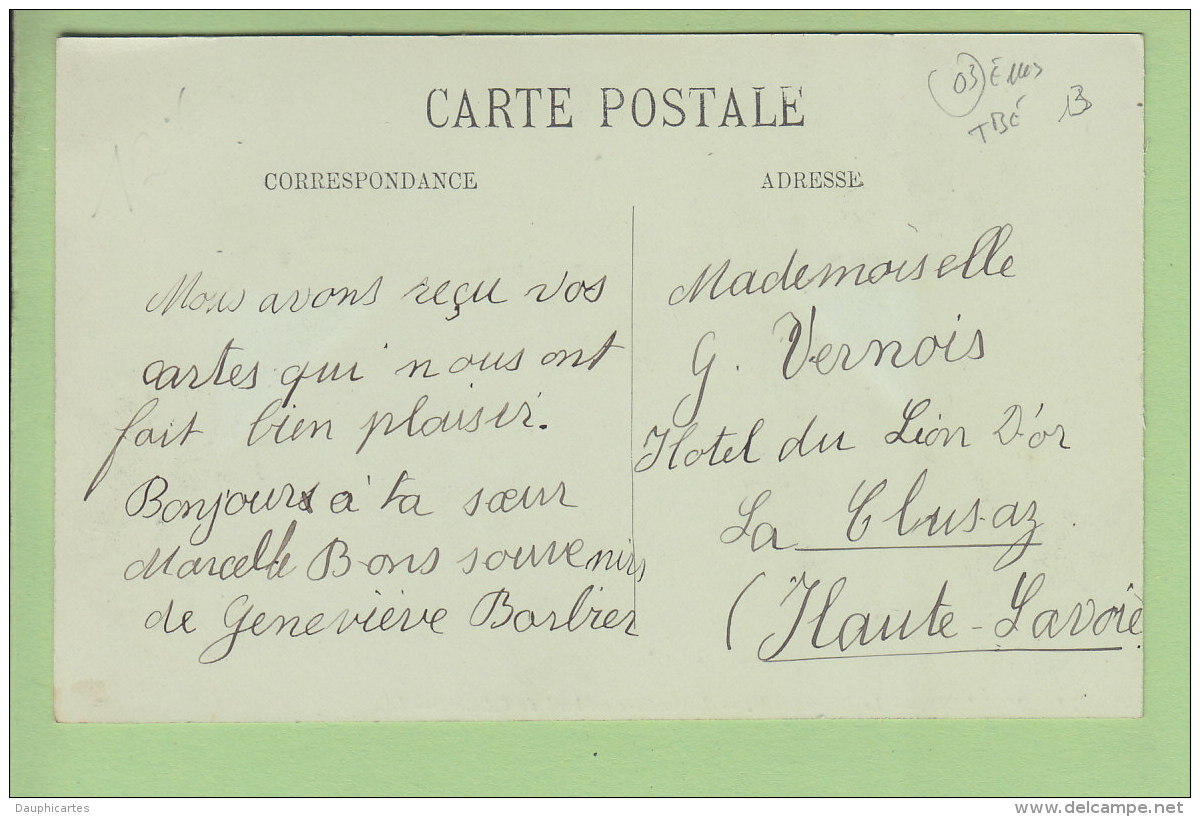 03
TBÉ
13
CARTE POSTALE
CORRESPONDANCE
ADRESSE
Nous avons reçu vos
cartes qui nous ont
fait bien plaisir.
Bonjours à ta sœur
Marcelle Bons souvenirs
de Geneviève Barbier
Mademoiselle
G. Vernois
Hotel du Lion D'or
La Clusaz
(Haute-Savoie
Dauphicartes
www.delcampe.net